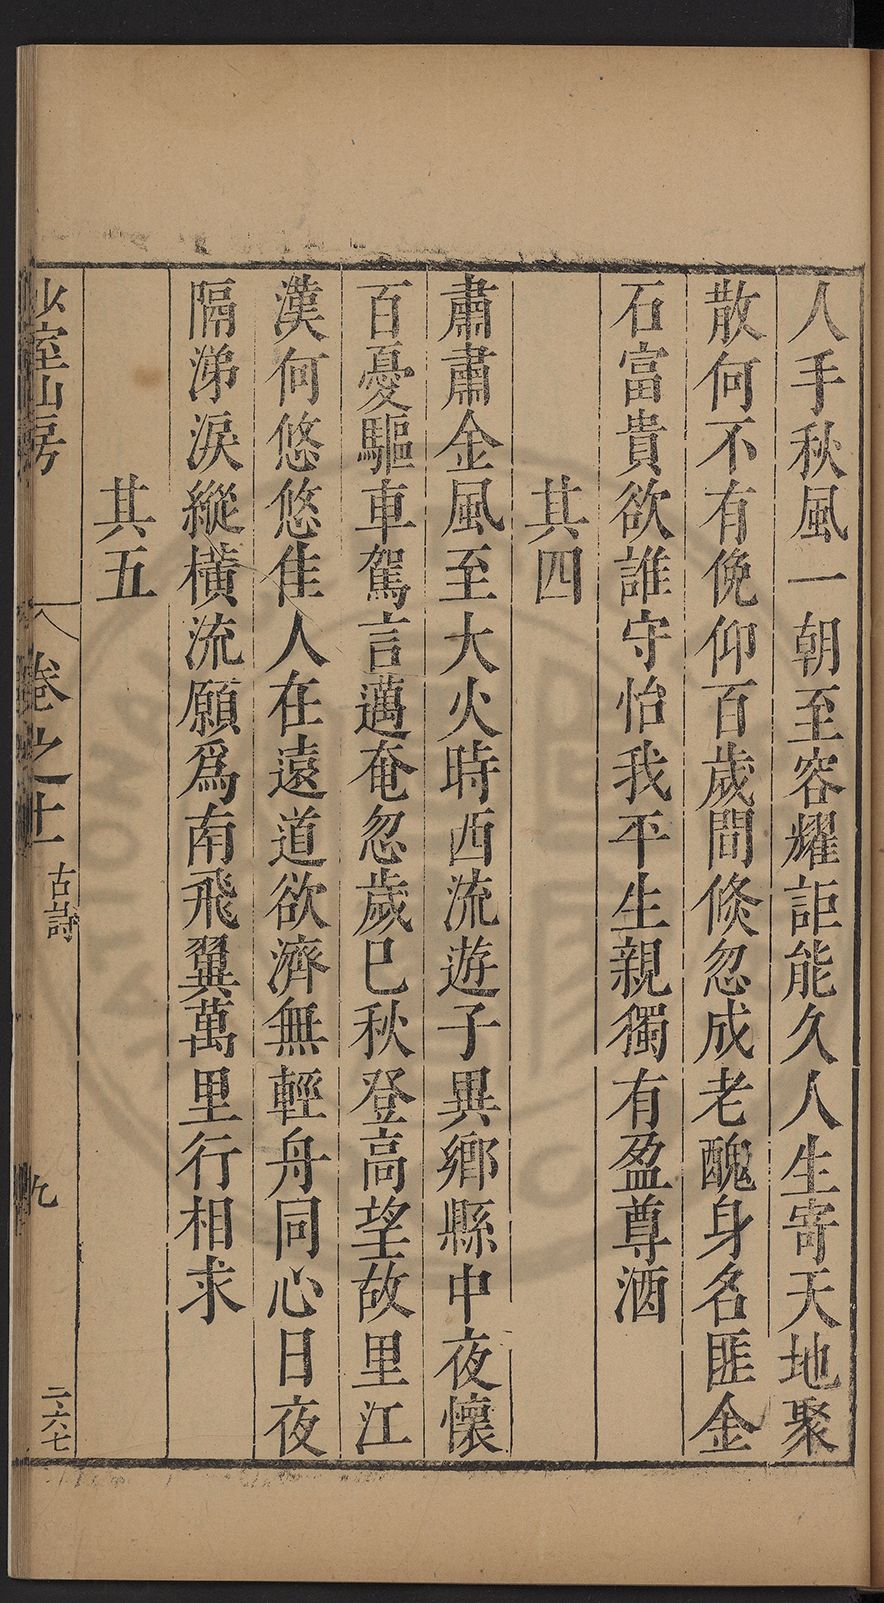 人手秋風一朝至容耀詎能久人生寄天地聚
散何不有俛仰百歲間倐忽成老醜身名匪金
石富貴欲誰守怡我平生親獨有盈尊酒
其四
肅肅金風至大火時西流遊子異鄉縣中夜懷
百憂驅車駕言邁奄忽歲巳秋登高望故里江
漢何悠悠佳人在遠道欲濟無輕舟同心日夜
隔涕淚縱橫流願爲南飛翼萬里行相求
其五
少室山房 卷之十一 古詩 九 二六七